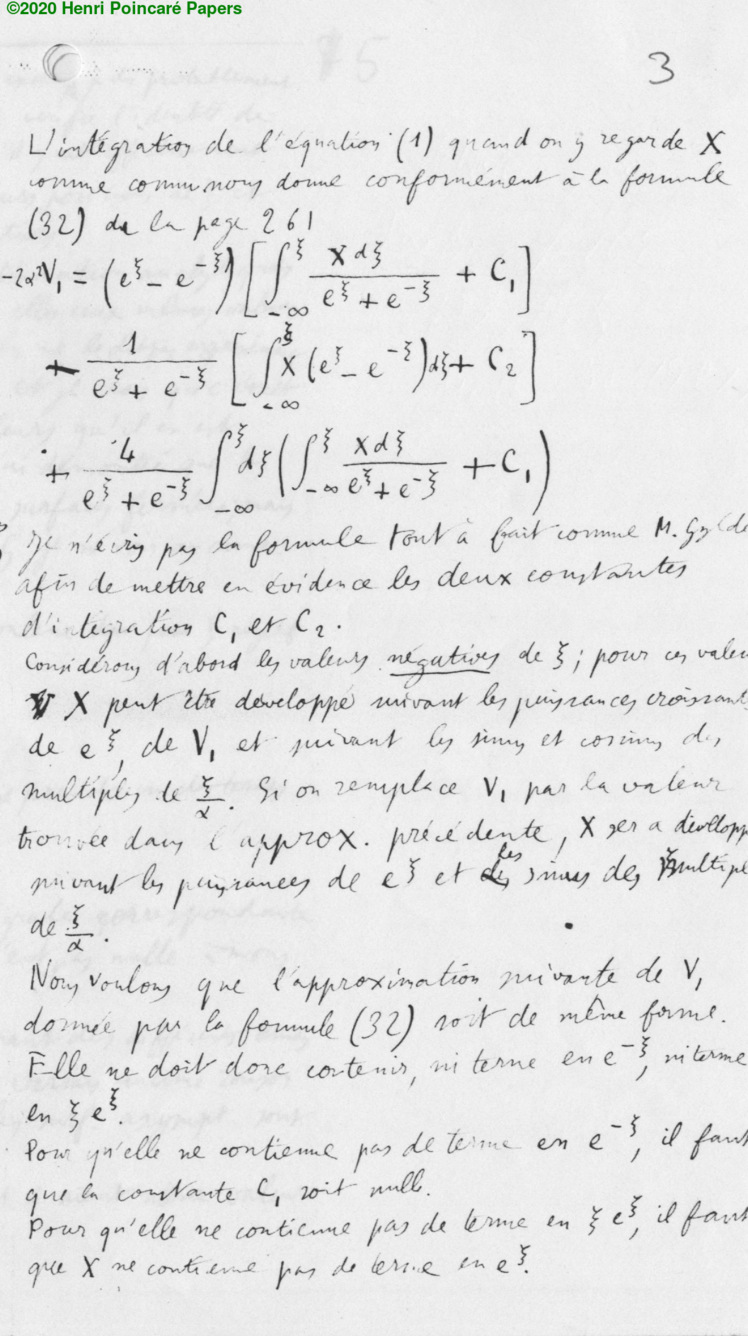 ©2020 Henri Poincaré Papers
3
L'intégration de l'équation (1) quand on y regarde X
comme connu nous donne conformément à la formule
(32) de la page 261
-2α²V₁ = (e^ξ - e^{-ξ}) [∫_{-∞}^ξ X dξ / (e^ξ + e^{-ξ}) + C₁]
+ 1 / (e^ξ + e^{-ξ}) [∫_{-∞}^ξ X (e^ξ - e^{-ξ}) dξ + C₂]
+ 4 / (e^ξ + e^{-ξ}) ∫_{-∞}^ξ dξ (∫_{-∞}^ξ X dξ / (e^ξ + e^{-ξ}) + C₁)
Je n'écris pas la formule tout à fait comme M. Gylde
afin de mettre en évidence les deux constantes
d'intégration C₁ et C₂.
Considérons d'abord les valeurs négatives de ξ ; pour ces valeu
X peut être développé suivant les puissances croissant
de e^ξ, de V₁ et suivant les sinus et cosinus des
multiples de ξ/α. Si on remplace V₁ par la valeur
trouvée dans l'approx. précédente, X sera développ
suivant les puissances de e^ξ et les sinus des multiple
de ξ/α.
Nous voulons que l'approximation suivante de V₁
donnée par la formule (32) soit de même forme.
Elle ne doit donc contenir, ni terme en e^{-ξ}, ni terme
en ξ e^ξ.
Pour qu'elle ne contienne pas de terme en e^{-ξ}, il faut
que la constante C₁ soit nulle.
Pour qu'elle ne contienne pas de terme en ξ e^ξ, il faut
que X ne contienne pas de terme en e^ξ.